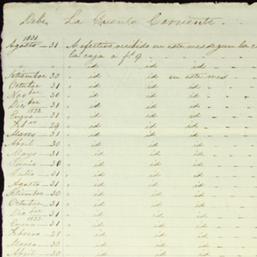 Debe La Cuenta Corriente
1831
Agosto - 31 A efectivo recibido en este mes segun la c
tal caja a fº 9
id id id
Setiembre 30 id id en este mes
Octubre 31 id id id
Nov bre 30 id id id
Dic bre 31 id id id
1832
Enero 31 id id id
Feb ro 29 id id id
Marzo 31 id id id
Abril 30 id id id
Mayo 31 id id id
Junio 30 id id id
Julio 31 id id id
Agosto 31 id id id
Setiembre 30 id id id
Octubre 31 id id id
Dic bre 31 id id id
1833
Enero 31 id id id
Febrero 28 id id id
Marzo 31 id id id
Abril 30 id id id